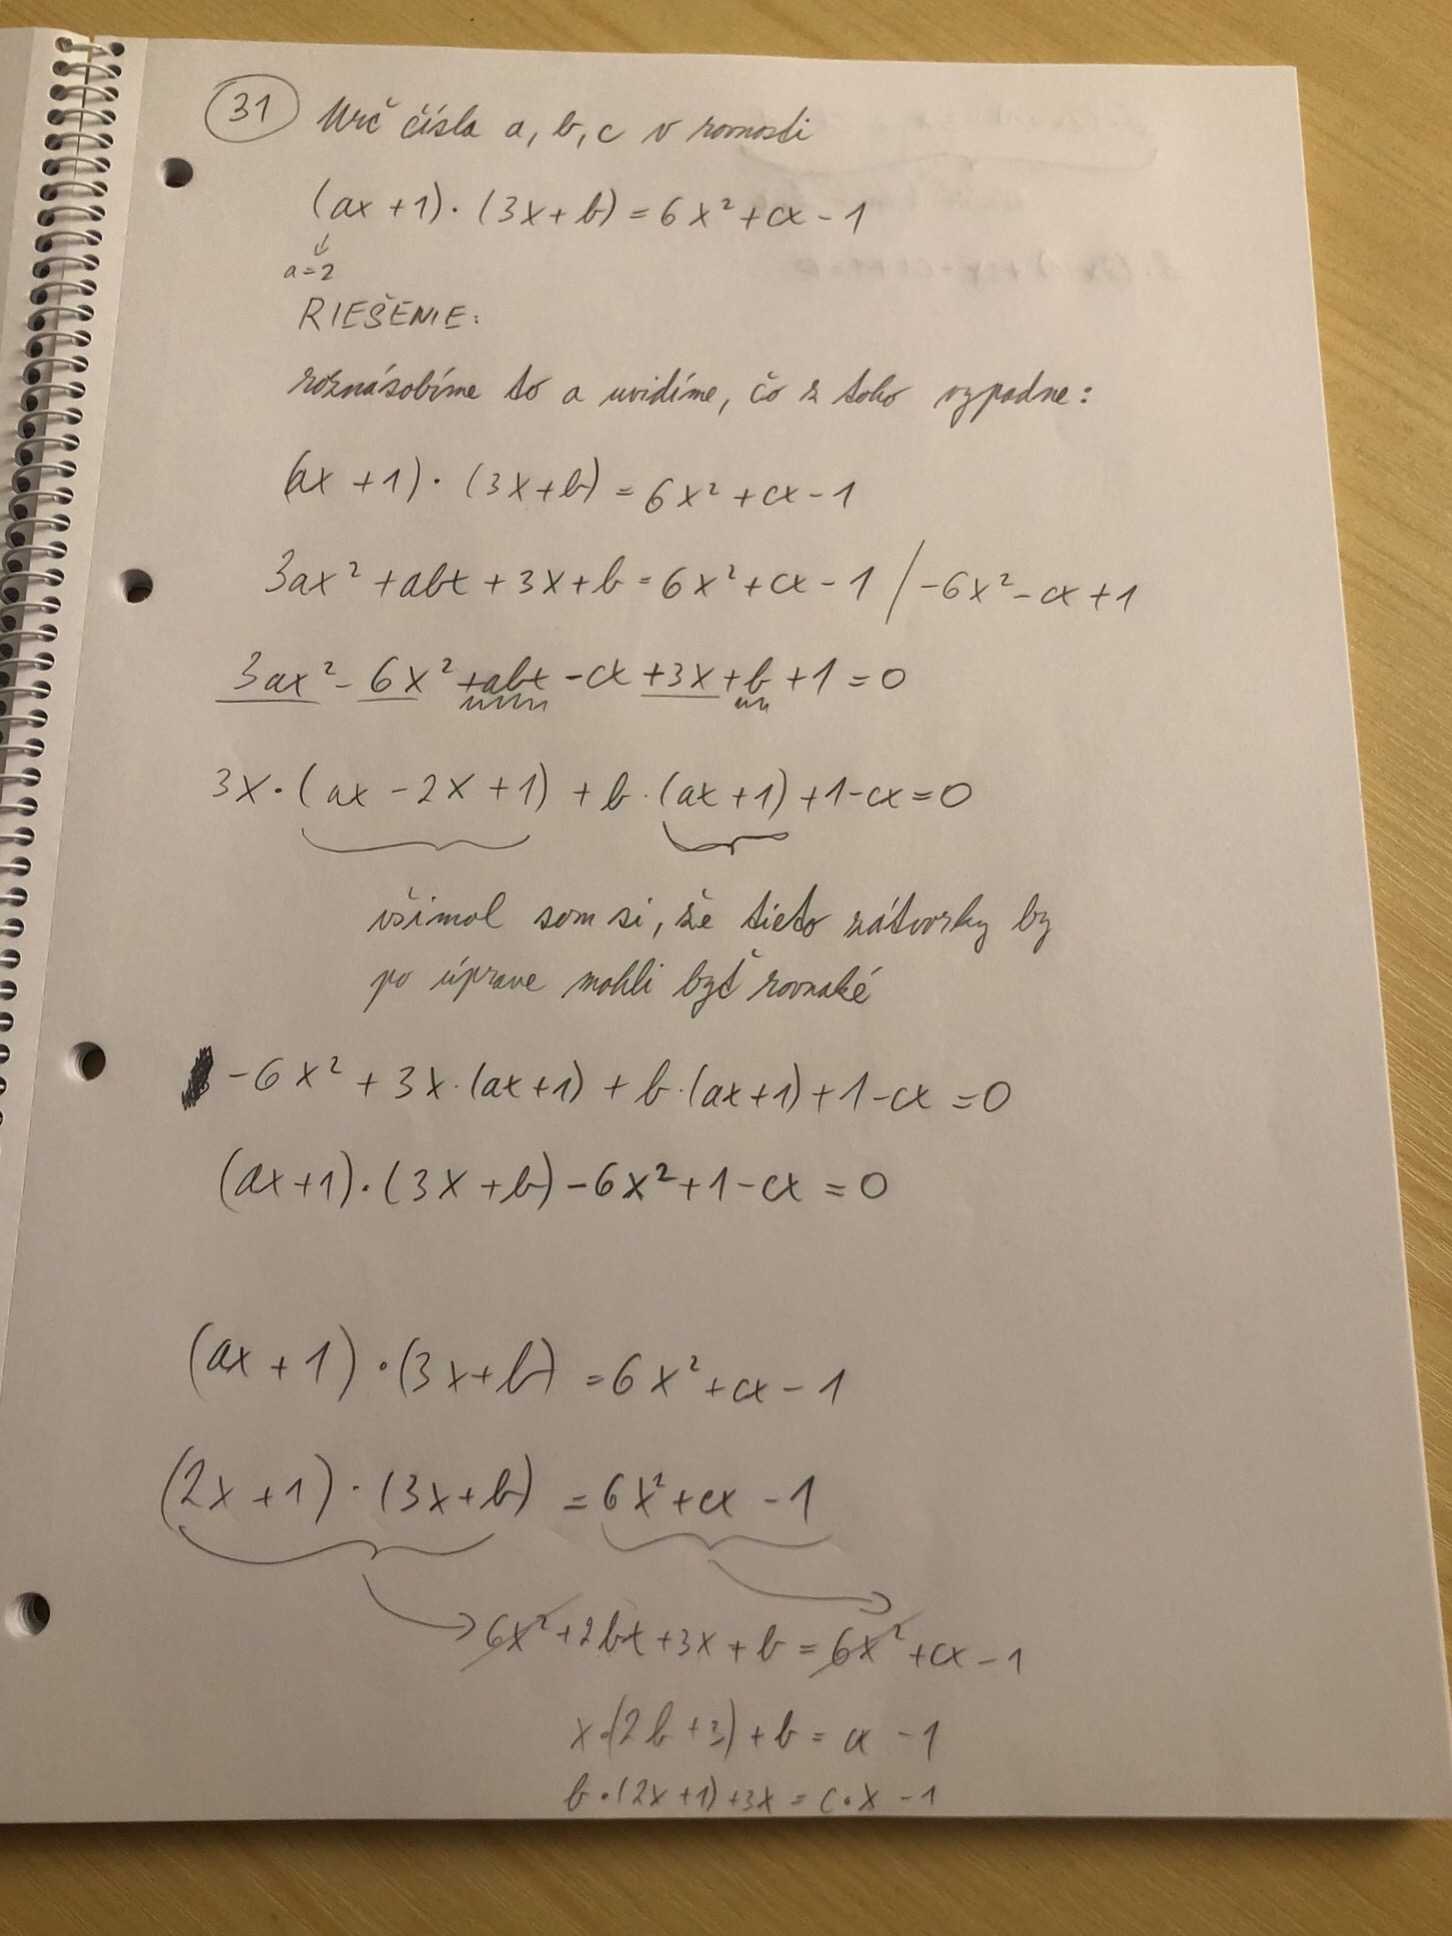 31 Urč čísla a, b, c v rovnosti
(ax + 1) · (3x + b) = 6x² + cx - 1
a = 2
RIEŠENIE:
roznásobíme to a uvidíme, čo z toho vypadne:
(ax + 1) · (3x + b) = 6x² + cx - 1
3ax² + abx + 3x + b = 6x² + cx - 1 / -6x² - cx + 1
3ax² - 6x² + abx - cx + 3x + b + 1 = 0
3x · (ax - 2x + 1) + b · (ax + 1) + 1 - cx = 0
všimol som si, že tieto zátvorky by
po úprave mohli byť rovnaké
-6x² + 3x · (ax + 1) + b · (ax + 1) + 1 - cx = 0
(ax + 1) · (3x + b) - 6x² + 1 - cx = 0
(ax + 1) · (3x + b) = 6x² + cx - 1
(2x + 1) · (3x + b) = 6x² + cx - 1
6x² + 2bx + 3x + b = 6x² + cx - 1
x · (2b + 3) + b = cx - 1
b · (2x + 1) + 3x = c · x - 1